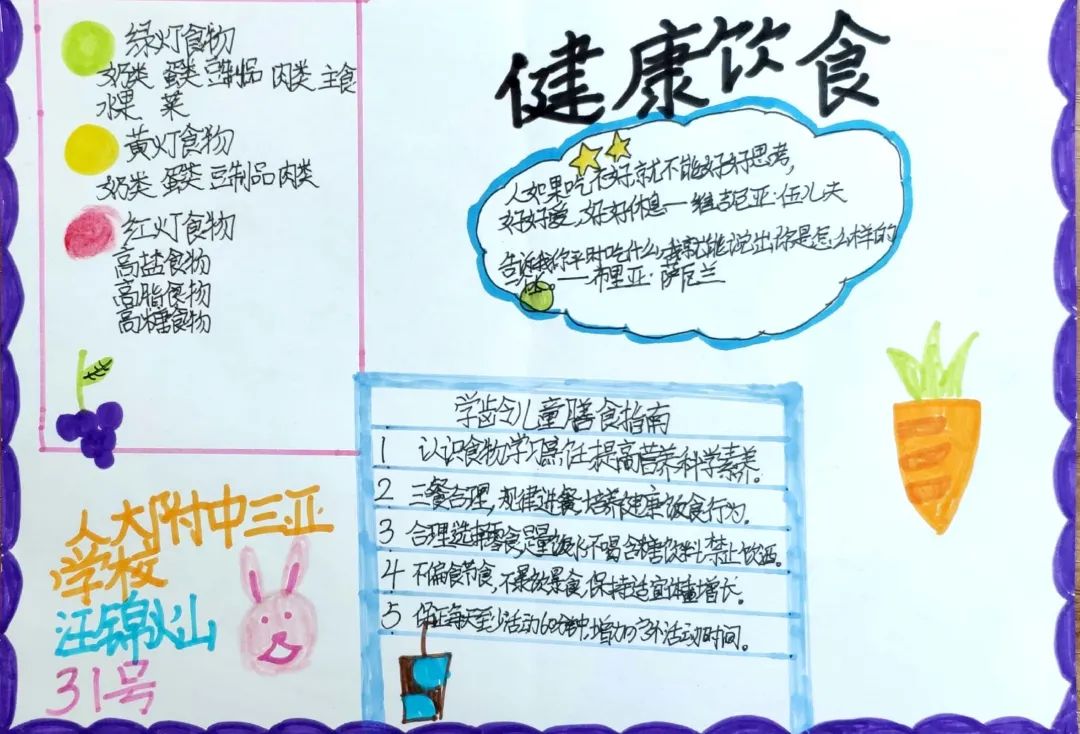 健康饮食
绿灯食物
奶类 蛋类 豆制品 肉类 主食
水果 菜
黄灯食物
奶类 蛋类 豆制品 肉类
红灯食物
高盐食物
高脂食物
高糖食物
人如果吃不好,就不能好好思考,
好好爱,好好休息——维吉尼亚·伍儿夫
告诉我你平时吃什么,我就能说出你是怎么样的
。——布里亚·萨瓦兰
学龄儿童膳食指南
1 认识食物,学习烹饪,提高营养科学素养。
2 三餐合理,规律进餐,培养健康饮食行为。
3 合理选择零食,足量饮水,不喝含糖饮料,禁止饮酒。
4 不偏食节食,不暴饮暴食,保持适宜体重增长。
5 保证每天至少活动60分钟,增加户外活动时间。
人大附中三亚
学校
汪锦
31号